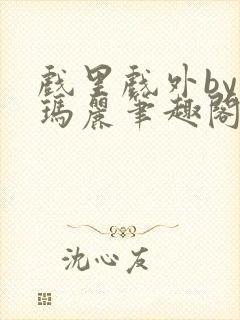 戲里戲外by
瑪麗筆趣閣
沈心友